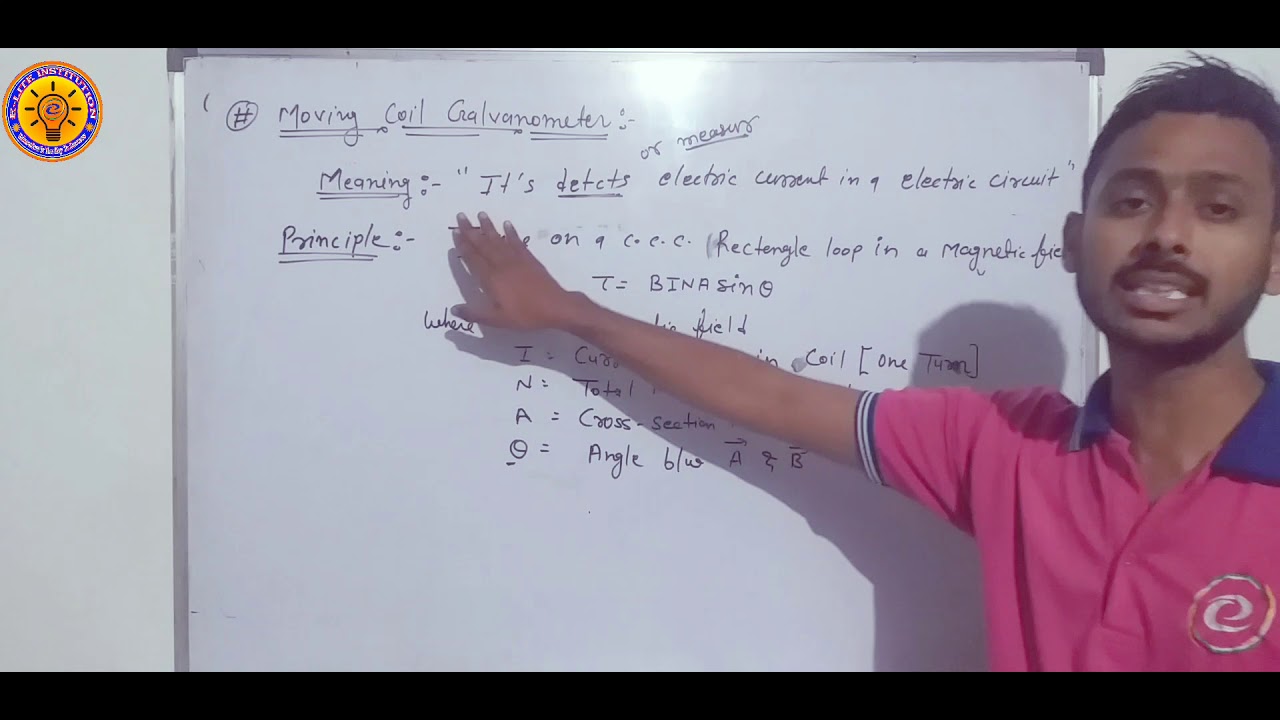 E-LITE INSTITUTION
# Moving Coil Galvanometer :-
or measur
Meaning :- "It's detcts electric current in a electric circuit"
Principle :- on a c.c.c. (Rectengle loop in a Magnetic fiel
τ = BINA sinθ
where field
I = Curr in Coil [One Turn]
N = Total
A = Cross-section
θ = Angle b/w A & B